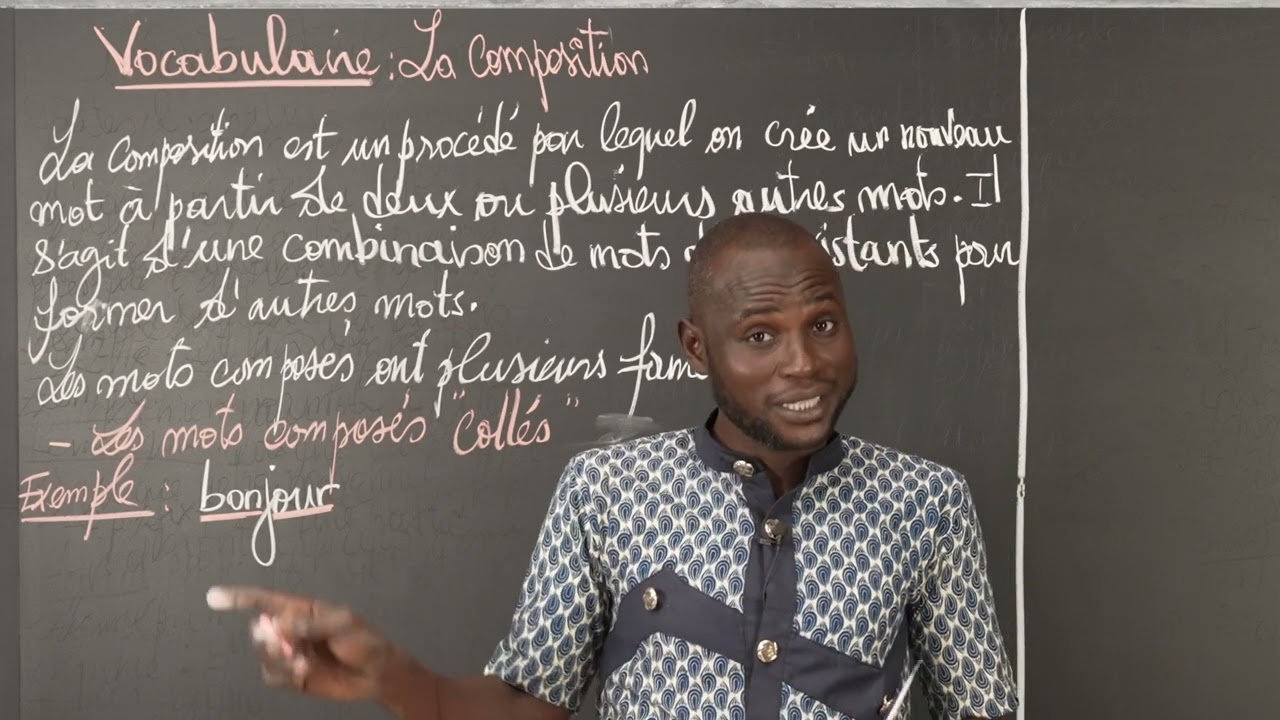 Vocabulaire : La Composition
La Composition est un procédé par lequel on crée un nouveau
mot à partir de deux ou plusieurs autres mots. Il
s'agit d'une combinaison de mots pour
former d'autres mots.
Les mots composés ont plusieurs
- Les mots composés "collés"
Exemple : bonjour